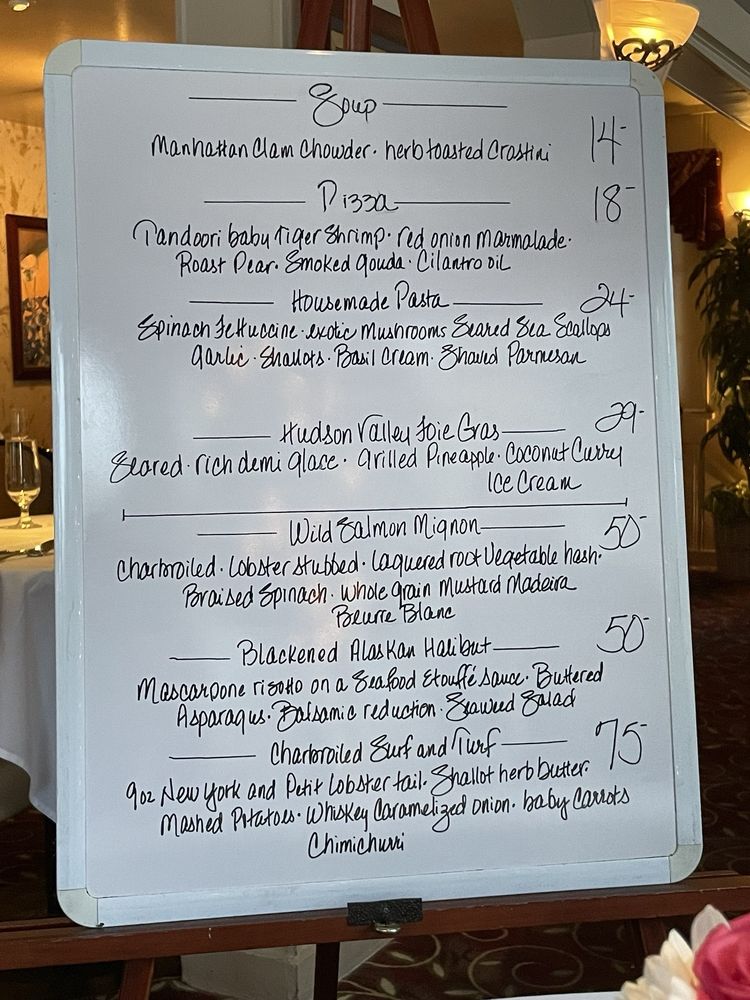 Soup
Manhattan Clam Chowder · herb toasted Crostini 14-
Pizza 18-
Tandoori baby Tiger Shrimp · red onion Marmalade ·
Roast Pear · Smoked gouda · Cilantro oil
Housemade Pasta 24-
Spinach Fettuccine · exotic Mushrooms Seared Sea Scallops
garlic · Shallots · Basil Cream · Shaved Parmesan
Hudson Valley Foie Gras 29-
Seared · rich demi glace · grilled Pineapple · Coconut Curry
Ice Cream
Wild Salmon Mignon 50-
Charbroiled · Lobster stubbed · Laquered root Vegetable hash ·
Braised Spinach · whole grain Mustard Madeira
Beurre Blanc
Blackened Alaskan Halibut 50-
Mascarpone risotto on a Seafood Etouffé Sauce · Buttered
Asparagus · Balsamic reduction · Seaweed Salad
Charbroiled Surf and Turf 75-
9oz New York and Petit Lobster tail · Shallot herb butter ·
Mashed Potatoes · Whiskey Caramelized onion · baby Carrots
Chimichurri